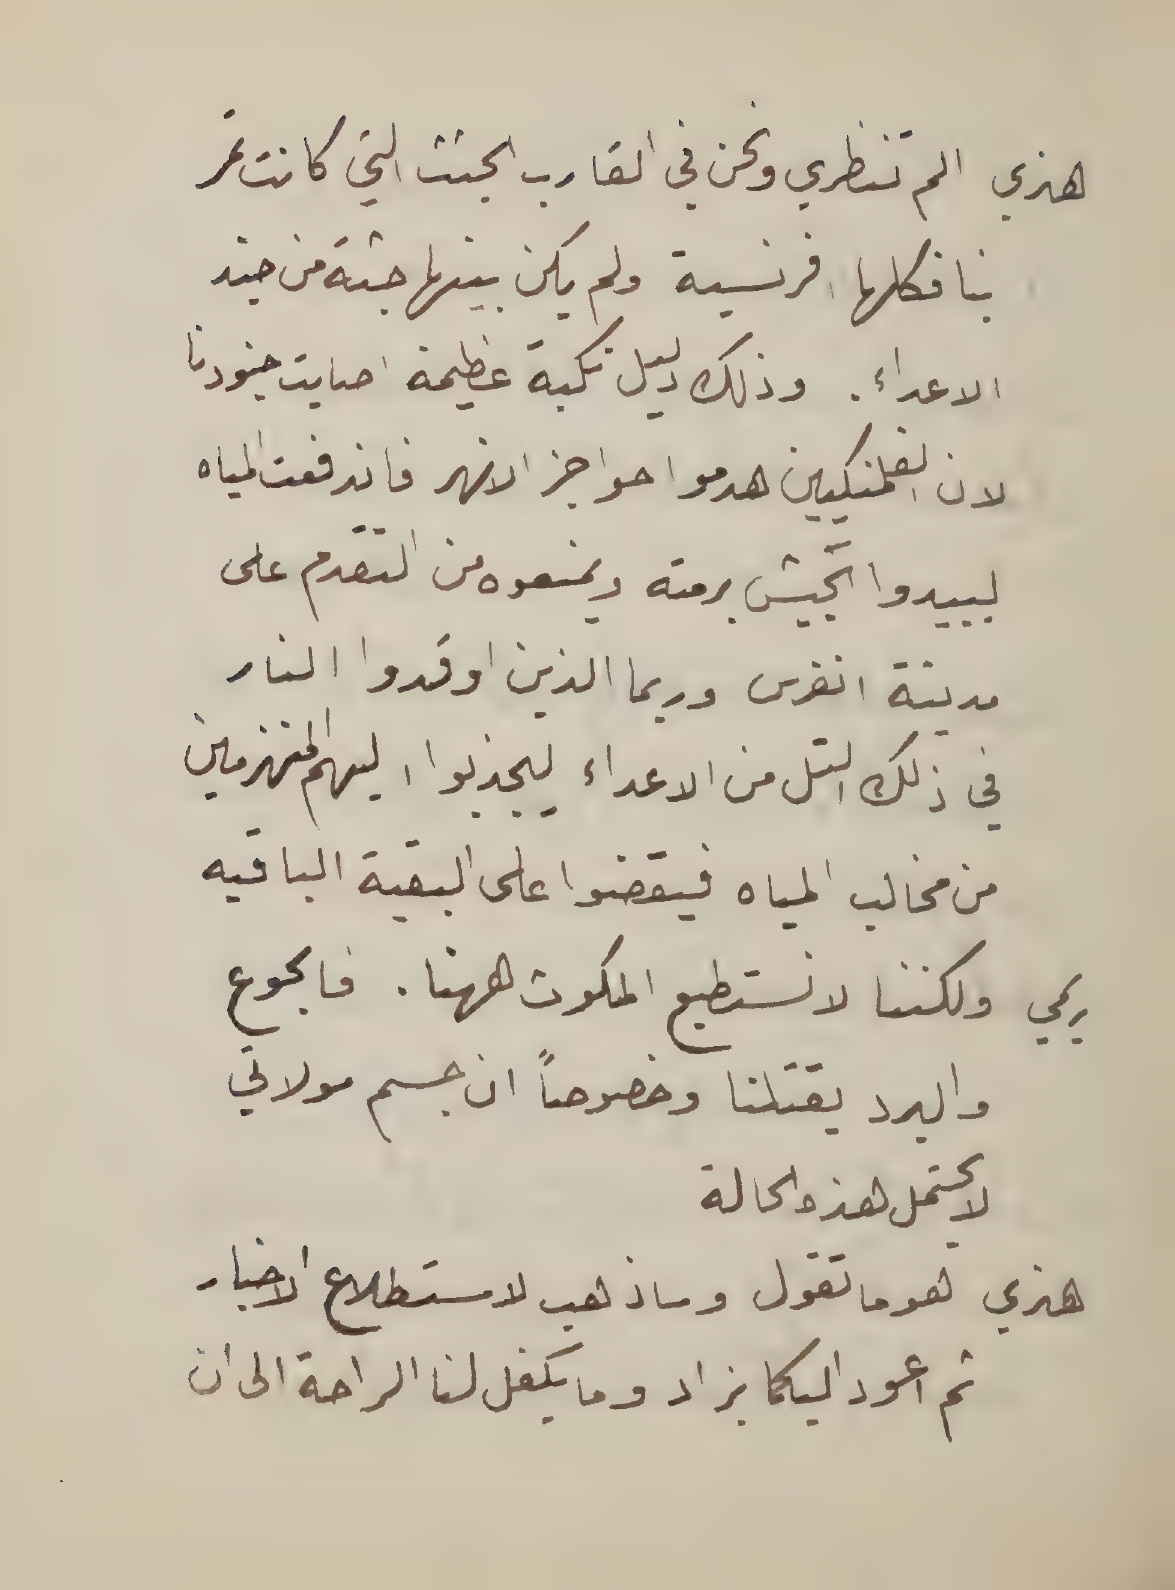 هنري الم تنظري ونحن في القارب الجثث التي كانت تمر
بنا فكلها افرنسية ولم يكن بينها جثة من جند
الاعداء. وذلك دليل نكبة عظيمة اصابت جنودنا
لان الفلمنكيين هدموا حواجز الانهر فاندفعت المياه
ليبيدوا الجيش برمته ويمنعوه من التقدم على
مدينة انفرس وربما الذين اوقدوا النار
في ذلك التل من الاعداء ليجذبوا اليهم المنهزمين
من مخالب المياه فيقضوا على البقية الباقيه
ريمي ولكننا لا نستطيع المكوث ههنا. فالجوع
والبرد يقتلنا وخصوصاً ان جسم مولاتي
لا يحتمل هذه الحالة
هنري هو ما تقول وساذهب لاستطلاع الاخبار
ثم اعود اليكما بزاد وما يكفل لنا الراحة الى ان